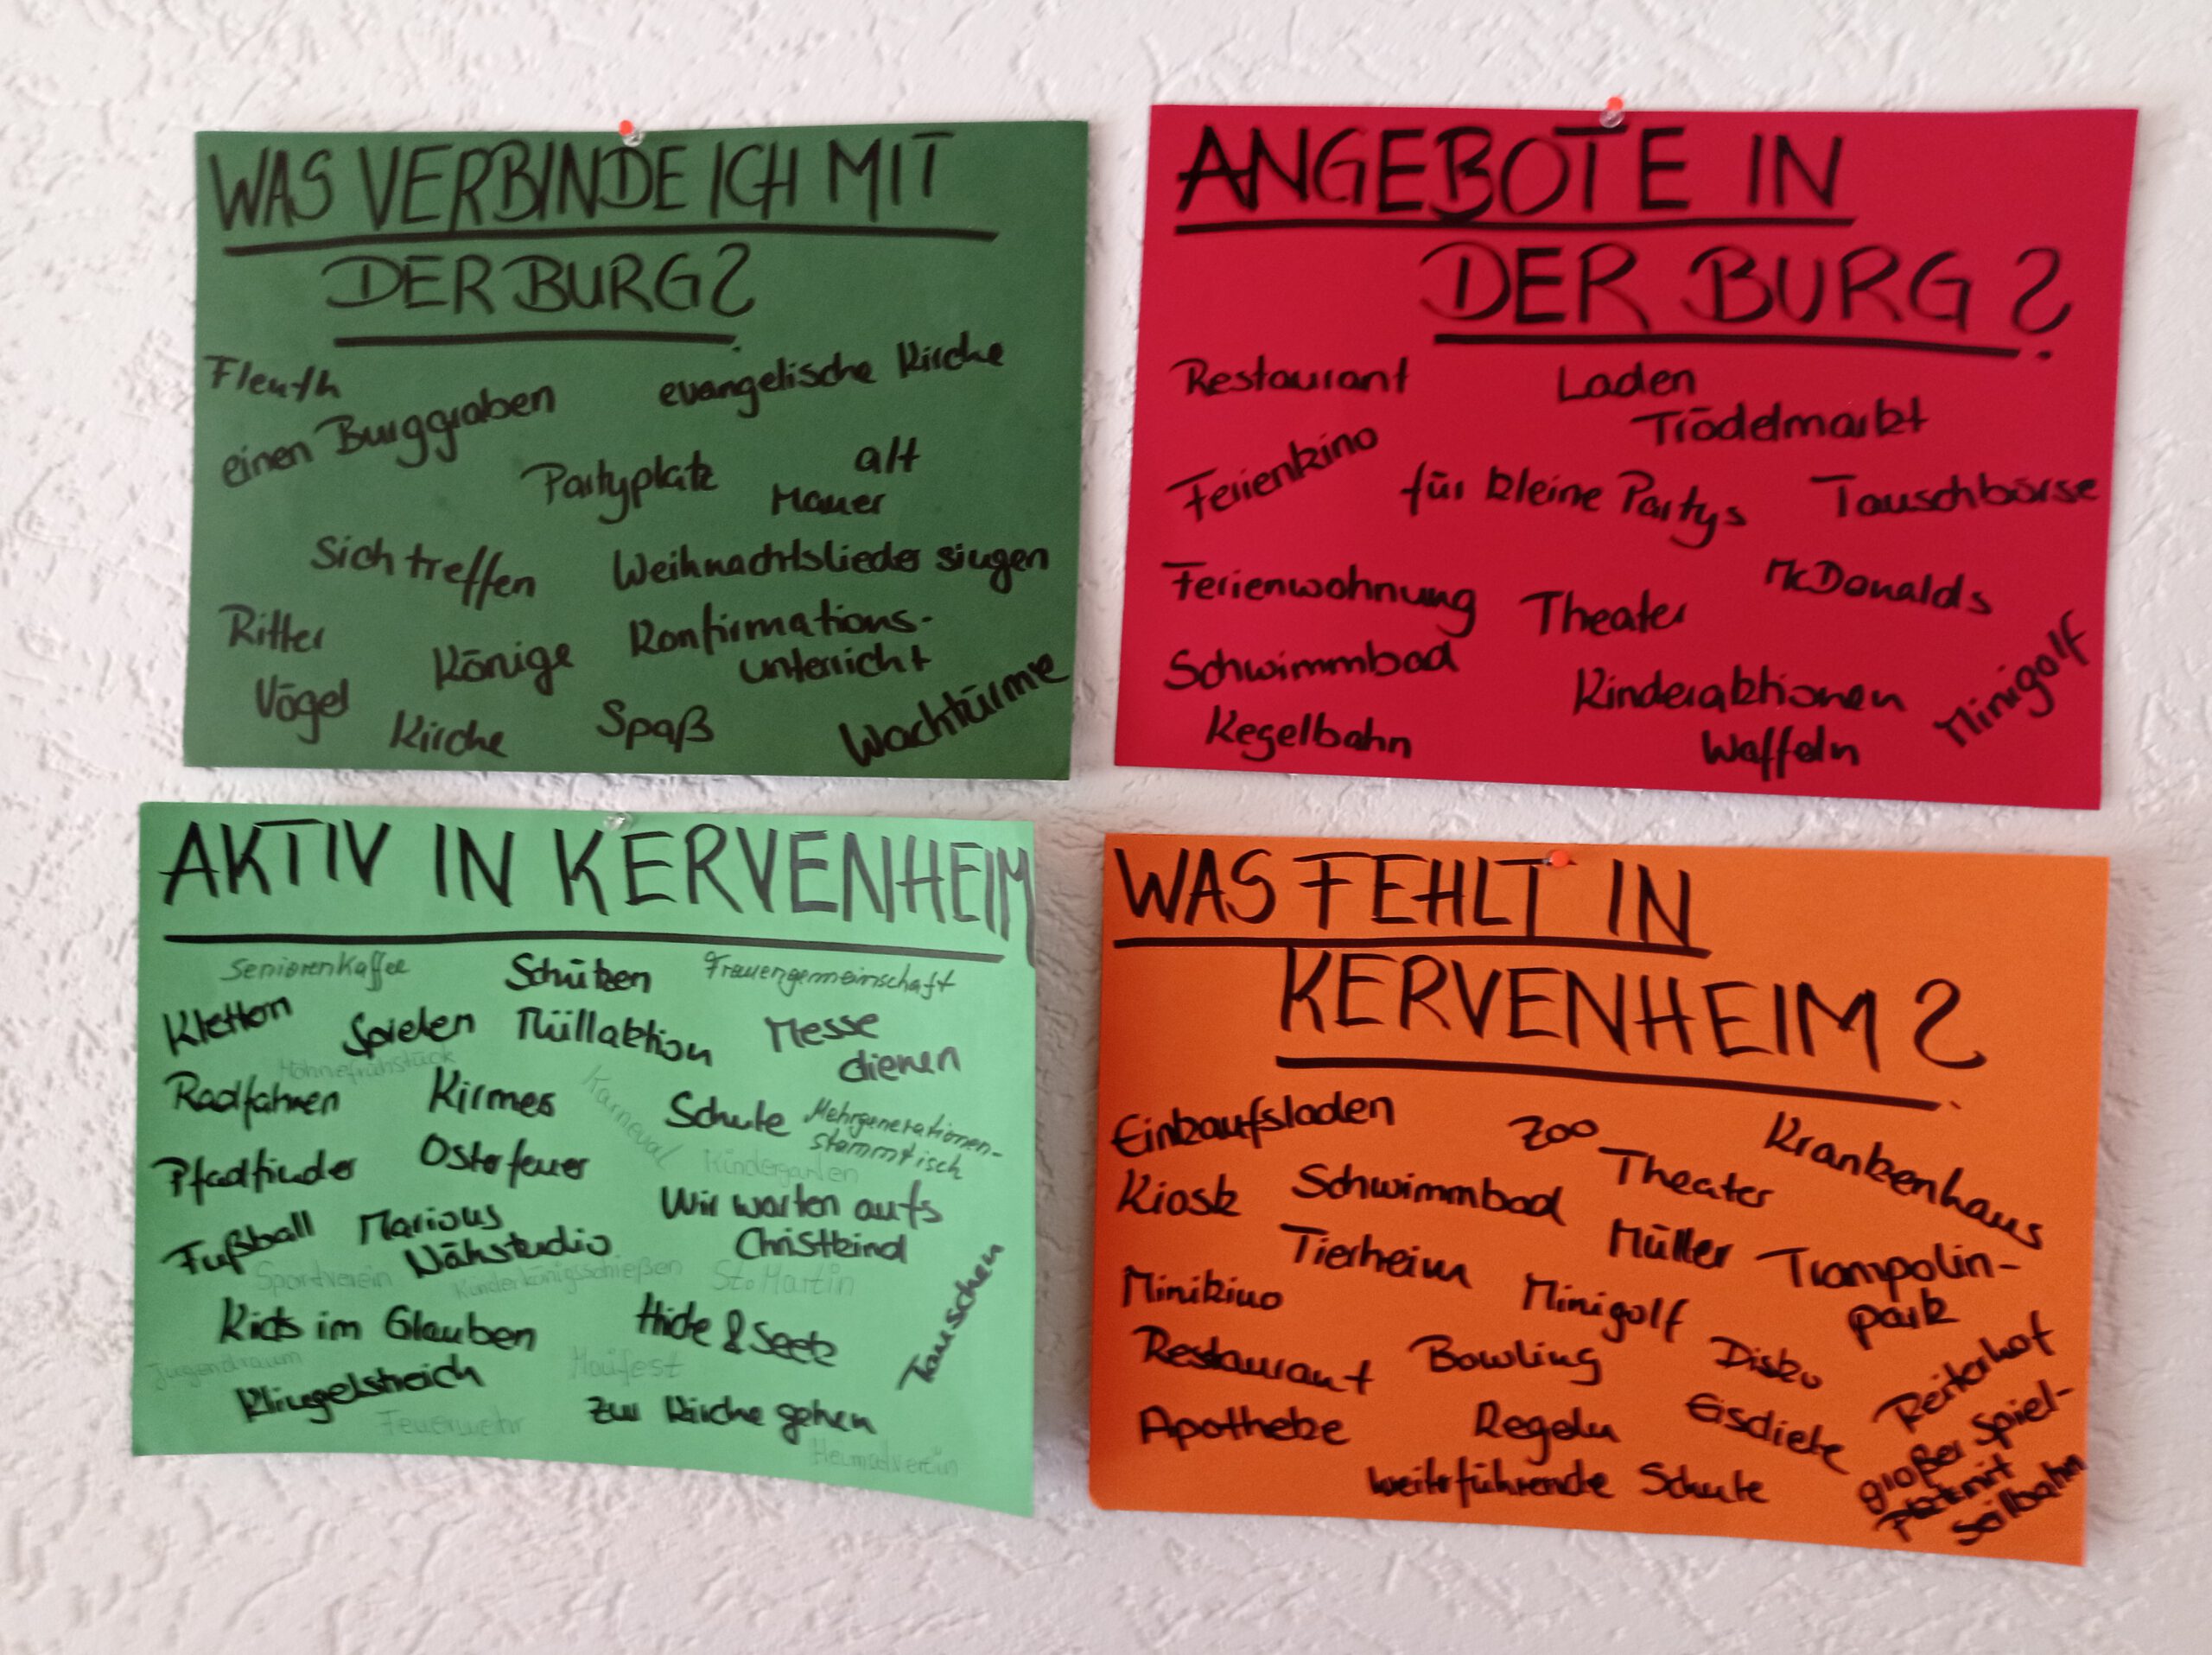 WAS VERBINDE ICH MIT
DER BURG?
Fleuth
evangelische Kirche
einen Burggraben
Partyplatz
alt
Mauer
Sich treffen
Weihnachtslieder singen
Ritter
Könige
Konfirmations-
unterricht
Vögel
Kirche
Spaß
Wachtürme
ANGEBOTE IN
DER BURG?
Restaurant
Laden
Trödelmarkt
Ferienkino
für kleine Partys
Tauschbörse
Ferienwohnung
Theater
McDonalds
Schwimmbad
Kinderaktionen
Minigolf
Kegelbahn
Waffeln
AKTIV IN KERVENHEIM
Seniorenkaffee
Schützen
Frauengemeinschaft
Klettern
Spielen
Müllaktion
Messe
dienen
Möhnefrühstück
Radfahren
Kirmes
Karneval
Schule
Mehrgenerationen-
stammtisch
Pfadfinder
Osterfeuer
Kindergarten
Wir warten aufs
Christkind
Fußball
Marious
Nähstudio
Sportverein
Kinderkönigsschießen
St. Martin
Tauschen
Kids im Glauben
Hide & Seek
Jugendraum
Maifest
Klingelstreich
zur Kirche gehen
Feuerwehr
Heimatverein
WAS FEHLT IN
KERVENHEIM?
Einkaufsladen
Zoo
Krankenhaus
Kiosk
Schwimmbad
Theater
Tierheim
Müller
Trampolin-
park
Minikino
Minigolf
Restaurant
Bowling
Disko
Reiterhof
Apotheke
Regeln
Eisdiele
großer Spiel-
platz mit
Seilbahn
weiterführende Schule